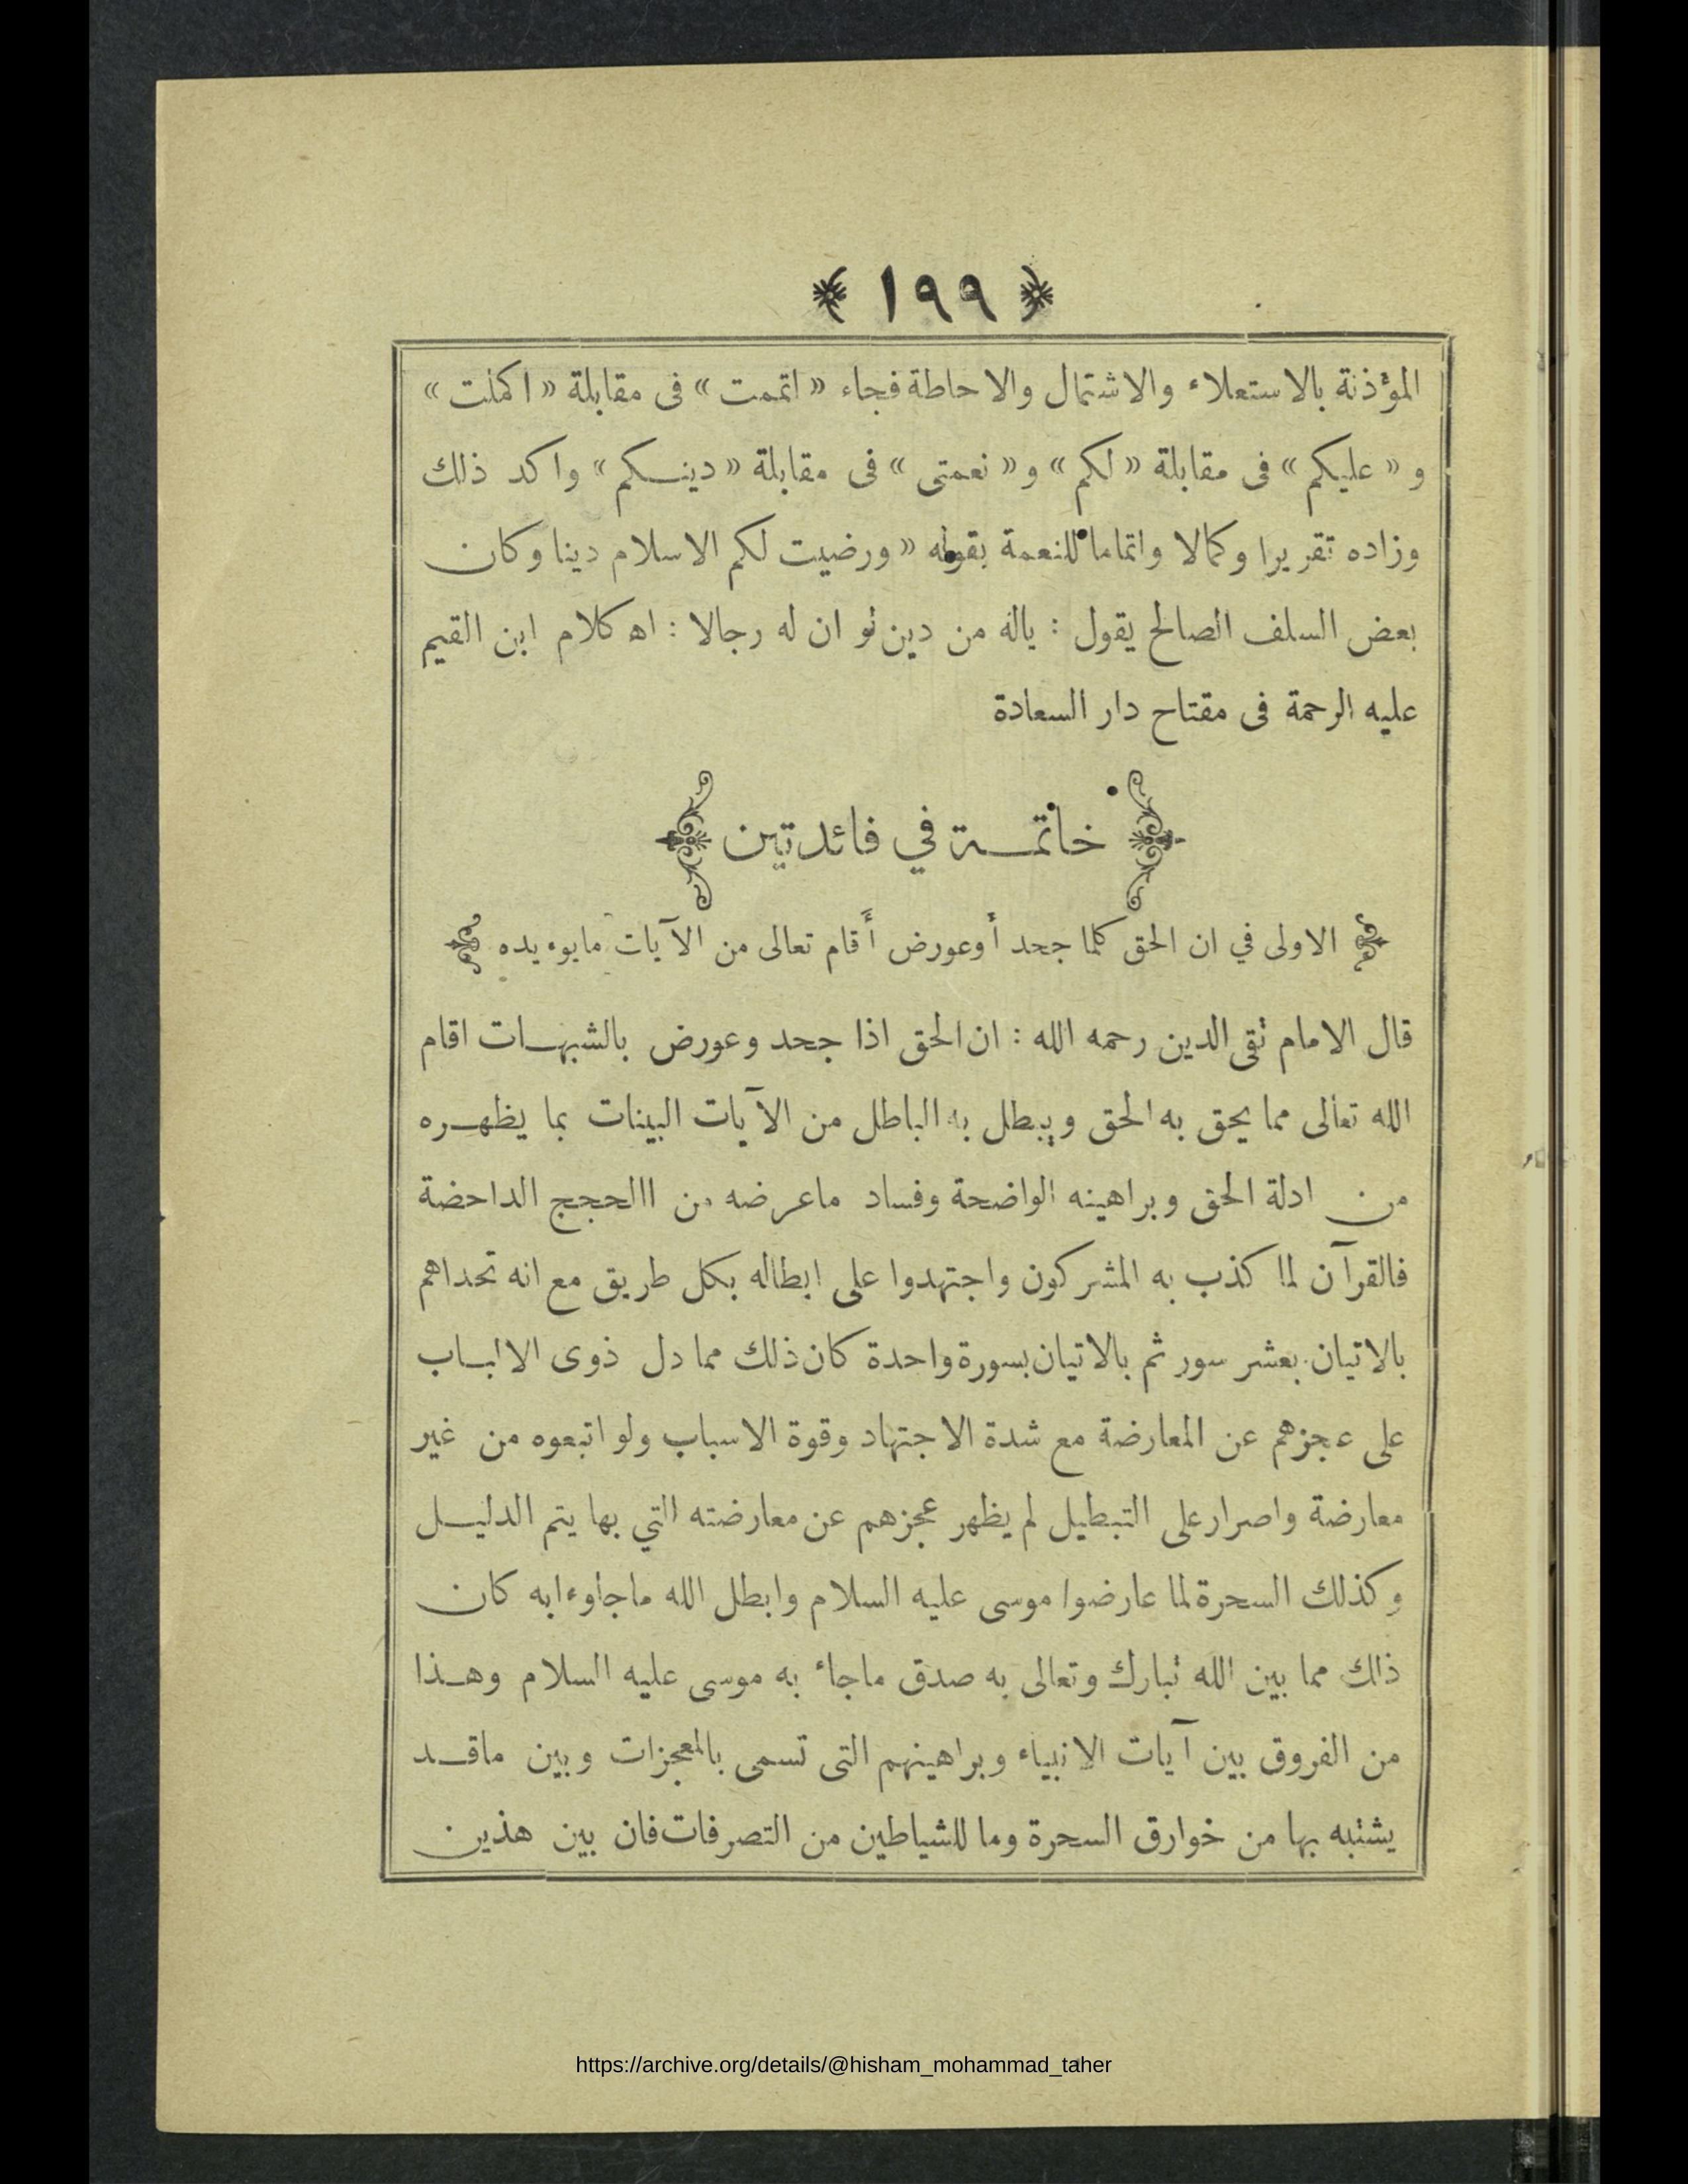 ﴿ ١٩٩ ﴾
المؤذنة بالاستعلاء والاشتمال والاحاطة فجاء « اتممت » فى مقابلة « اكملت »
و « عليكم » فى مقابلة « لكم » و « نعمتى » فى مقابلة « دينـكم » واكد ذلك
وزاده تقريرا وكمالا واتماما للنعمة بقوله « ورضيت لكم الاسلام دينا وكان
بعض السلف الصالح يقول : ياله من دين لو ان له رجالا : اه كلام ابن القيم
عليه الرحمة فى مفتاح دار السعادة
خاتمـة في فائدتين
الاولى في ان الحق كلما جحد أوعورض أَقام تعالى من الآيات مايوءيده
قال الامام تقى الدين رحمه الله : ان الحق اذا جحد وعورض بالشبهـات اقام
الله تعالى مما يحق به الحق ويبطل به الباطل من الآيات البينات بما يظهـره
من ادلة الحق وبراهينه الواضحة وفساد ماعرضه من االحجج الداحضة
فالقرآن لما كذب به المشركون واجتهدوا على ابطاله بكل طريق مع انه تحداهم
بالاتيان بعشر سور ثم بالاتيان بسورة واحدة كان ذلك مما دل ذوى الالبـاب
على عجزهم عن المعارضة مع شدة الاجتهاد وقوة الاسباب ولو اتبعوه من غير
معارضة واصرار على التبطيل لم يظهر عجزهم عن معارضته التي بها يتم الدليـل
وكذلك السحرة لما عارضوا موسى عليه السلام وابطل الله ماجاوءابه كان
ذلك مما بين الله تبارك وتعالى به صدق ماجاء به موسى عليه السلام وهـذا
من الفروق بين آيات الانبياء وبراهينهم التى تسمى بالمعجزات وبين ماقـد
يشتبه بها من خوارق السحرة وما للشياطين من التصرفات فان بين هذين
https://archive.org/details/@hisham_mohammad_taher